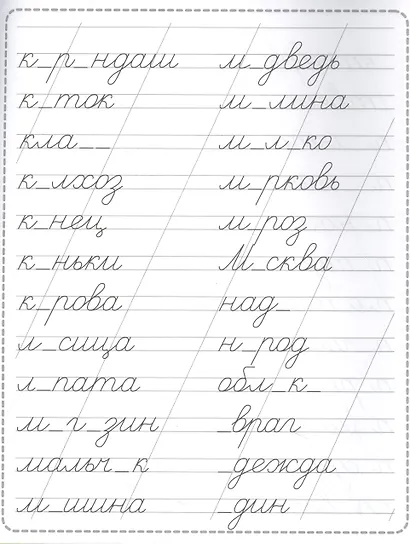 к_р_ндаш
к_ток
кла__
к_лхоз
к_нец
к_ньки
к_рова
л_сица
л_пата
м_г_зин
мальч_к
м_шина
м_дведь
м_лина
м_л_ко
м_рковь
м_роз
М_сква
над_
н_род
обл_к_
_враг
_дежда
_дин